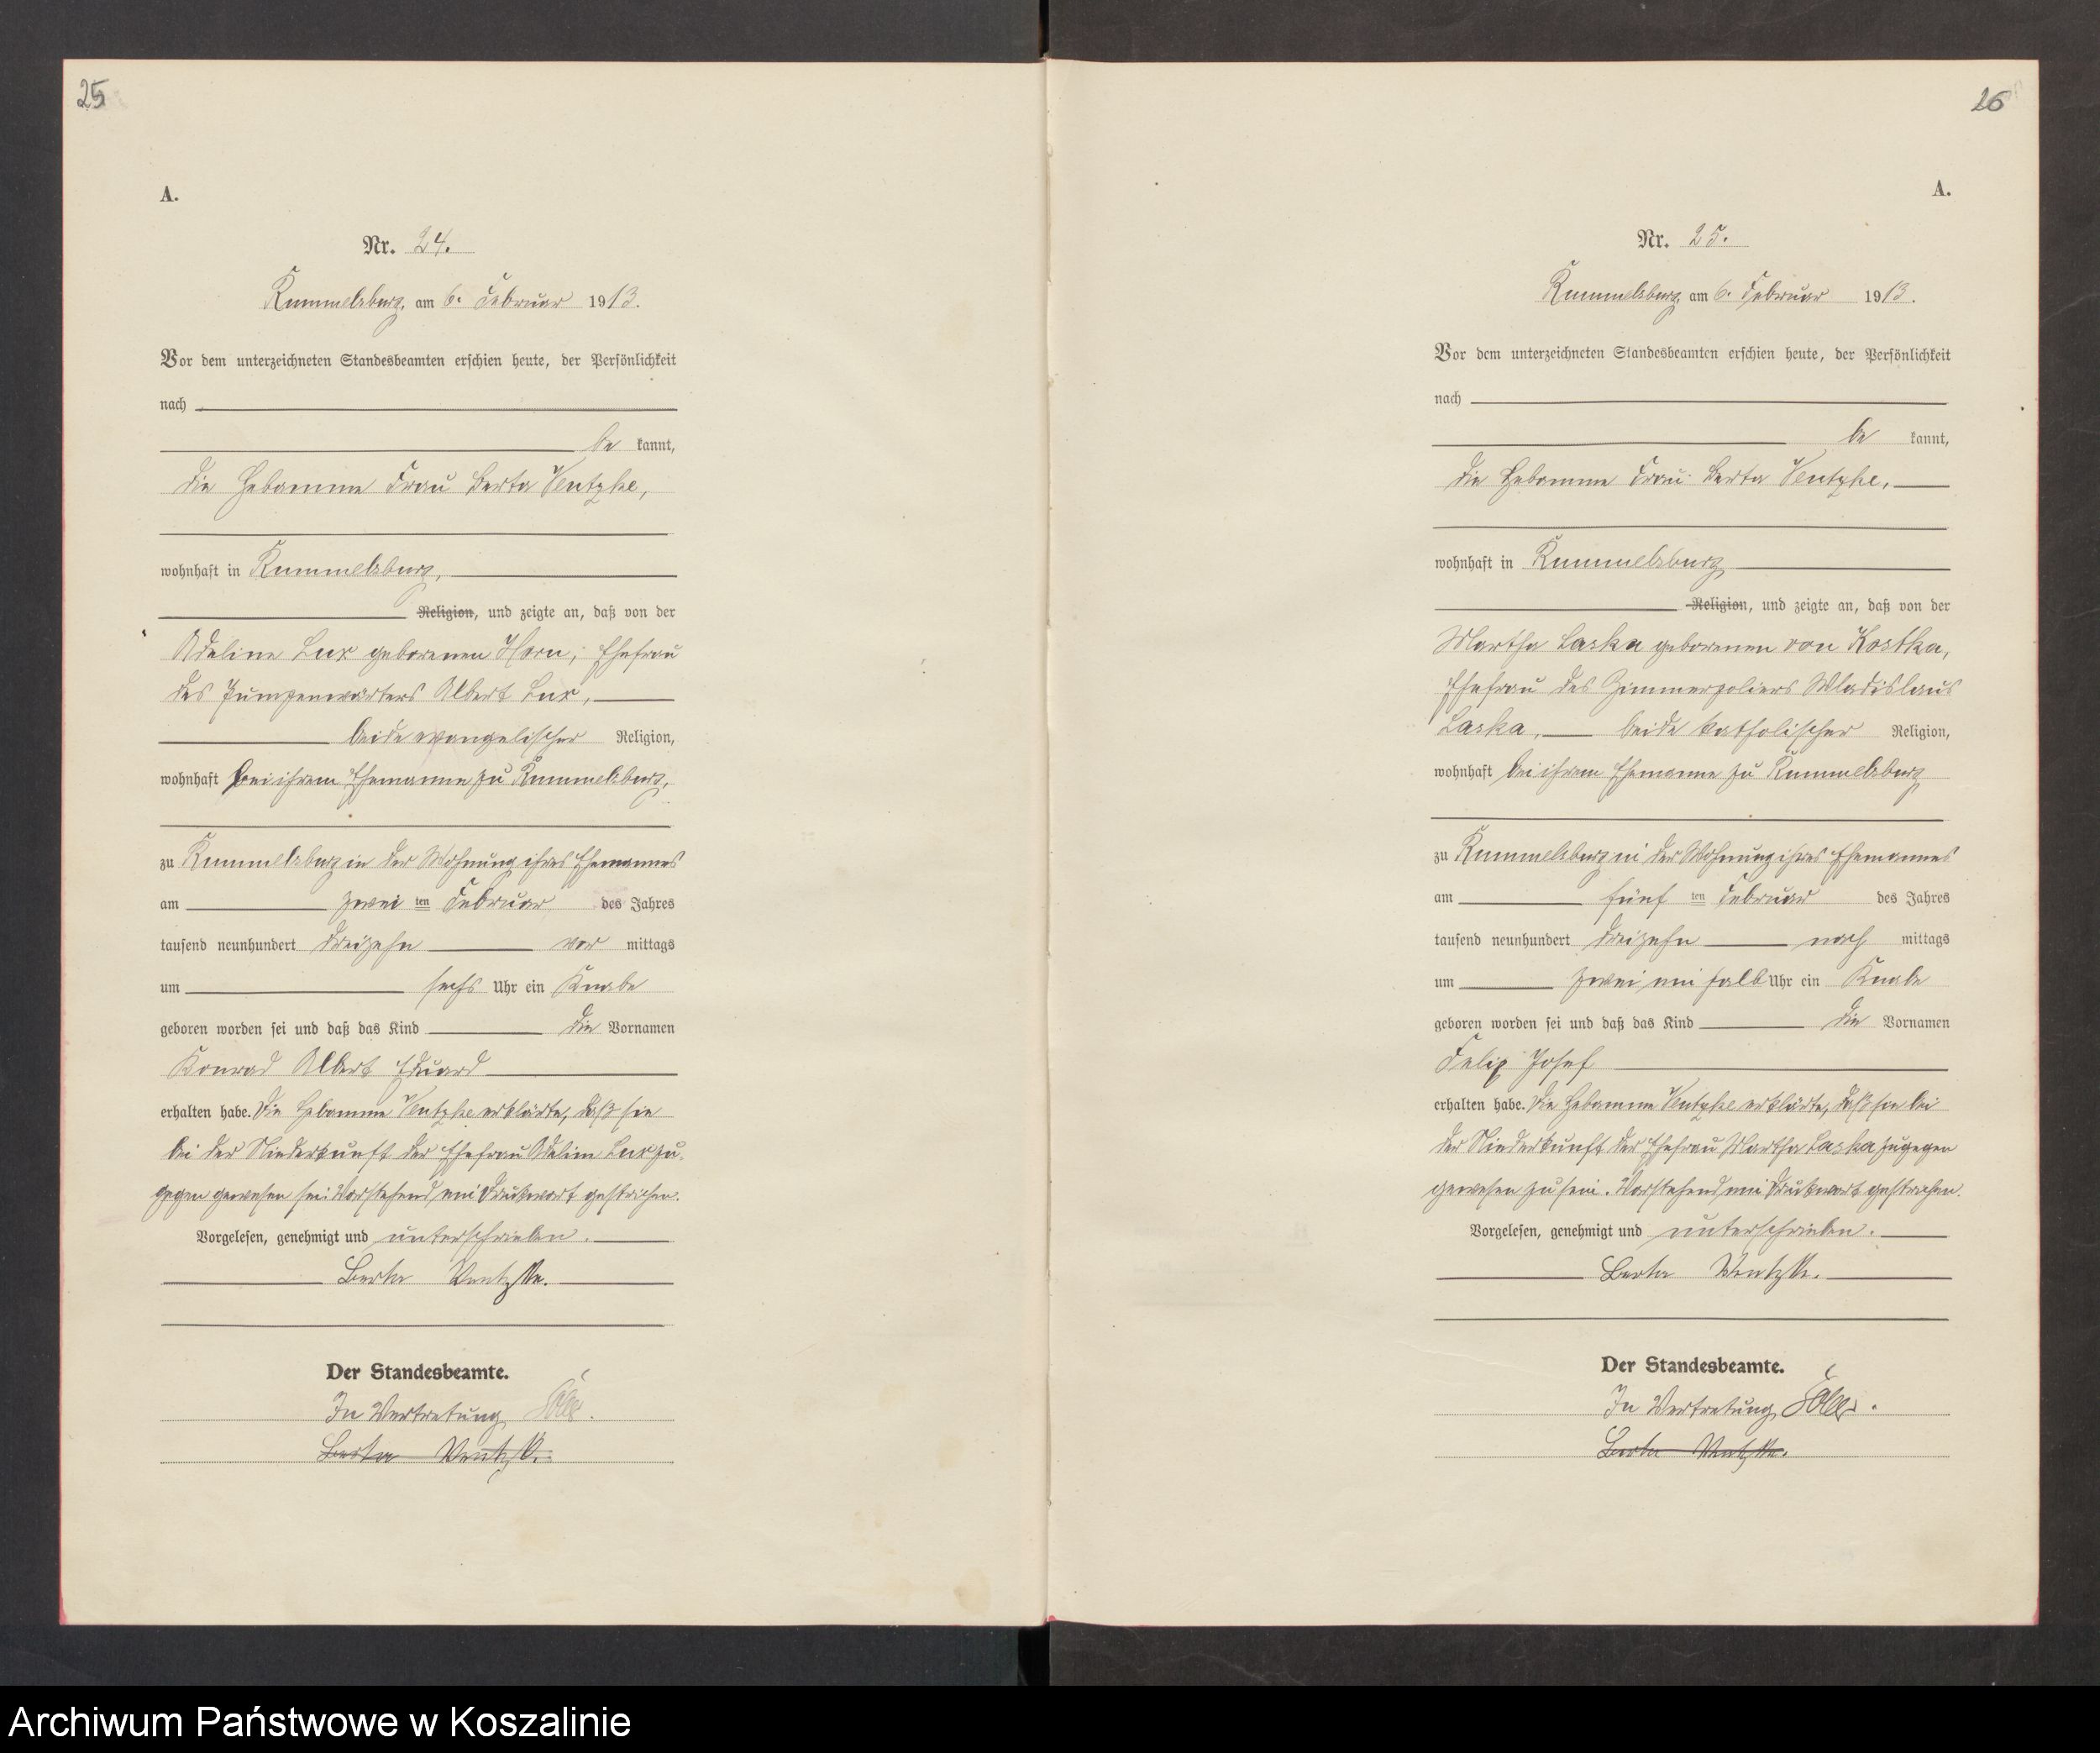 25
A.
Nr. 24.
Rummelsburg, am 6. Februar 1913.
Vor dem unterzeichneten Standesbeamten erschien heute, der Persönlichkeit
nach
be kannt,
die Hebamme Frau Berta Ventzke,
wohnhaft in Rummelsburg,
Religion, und zeigte an, daß von der
Adeline Lux geborenen Horn, Ehefrau
des Pumpenwärters Albert Lux,
beide evangelischer Religion,
wohnhaft bei ihrem Ehemanne zu Rummelsburg,
zu Rummelsburg in der Wohnung ihres Ehemannes
am zwei ten Februar des Jahres
tausend neunhundert dreizehn vor mittags
um sechs Uhr ein Knabe
geboren worden sei und daß das Kind die Vornamen
Konrad Albert Eduard
erhalten habe. Die Hebamme Ventzke erklärte, daß sie
bei der Niederkunft der Ehefrau Adeline Lux zu-
gegen gewesen sei. Vorstehend ein Druckwort gestrichen.
Vorgelesen, genehmigt und unterschrieben.
Berta Ventzke.
Der Standesbeamte.
In Vertretung
Berta Ventzke.
26
A.
Nr. 25.
Rummelsburg, am 6. Februar 1913.
Vor dem unterzeichneten Standesbeamten erschien heute, der Persönlichkeit
nach
be kannt,
die Hebamme Frau Berta Ventzke,
wohnhaft in Rummelsburg
Religion, und zeigte an, daß von der
Martha Laska geborenen von Kostka,
Ehefrau des Zimmerpoliers Wladislaus
Laska, beide katholischer Religion,
wohnhaft bei ihrem Ehemanne zu Rummelsburg
zu Rummelsburg in der Wohnung ihres Ehemannes
am fünf ten Februar des Jahres
tausend neunhundert dreizehn nach mittags
um zwei ein halb Uhr ein Knabe
geboren worden sei und daß das Kind die Vornamen
Felix Josef
erhalten habe. Die Hebamme Ventzke erklärte, daß sie bei
der Niederkunft der Ehefrau Martha Laska zugegen
gewesen zu sein. Vorstehend ein Druckwort gestrichen.
Vorgelesen, genehmigt und unterschrieben.
Berta Ventzke.
Der Standesbeamte.
In Vertretung
Berta Ventzke.
Archiwum Państwowe w Koszalinie